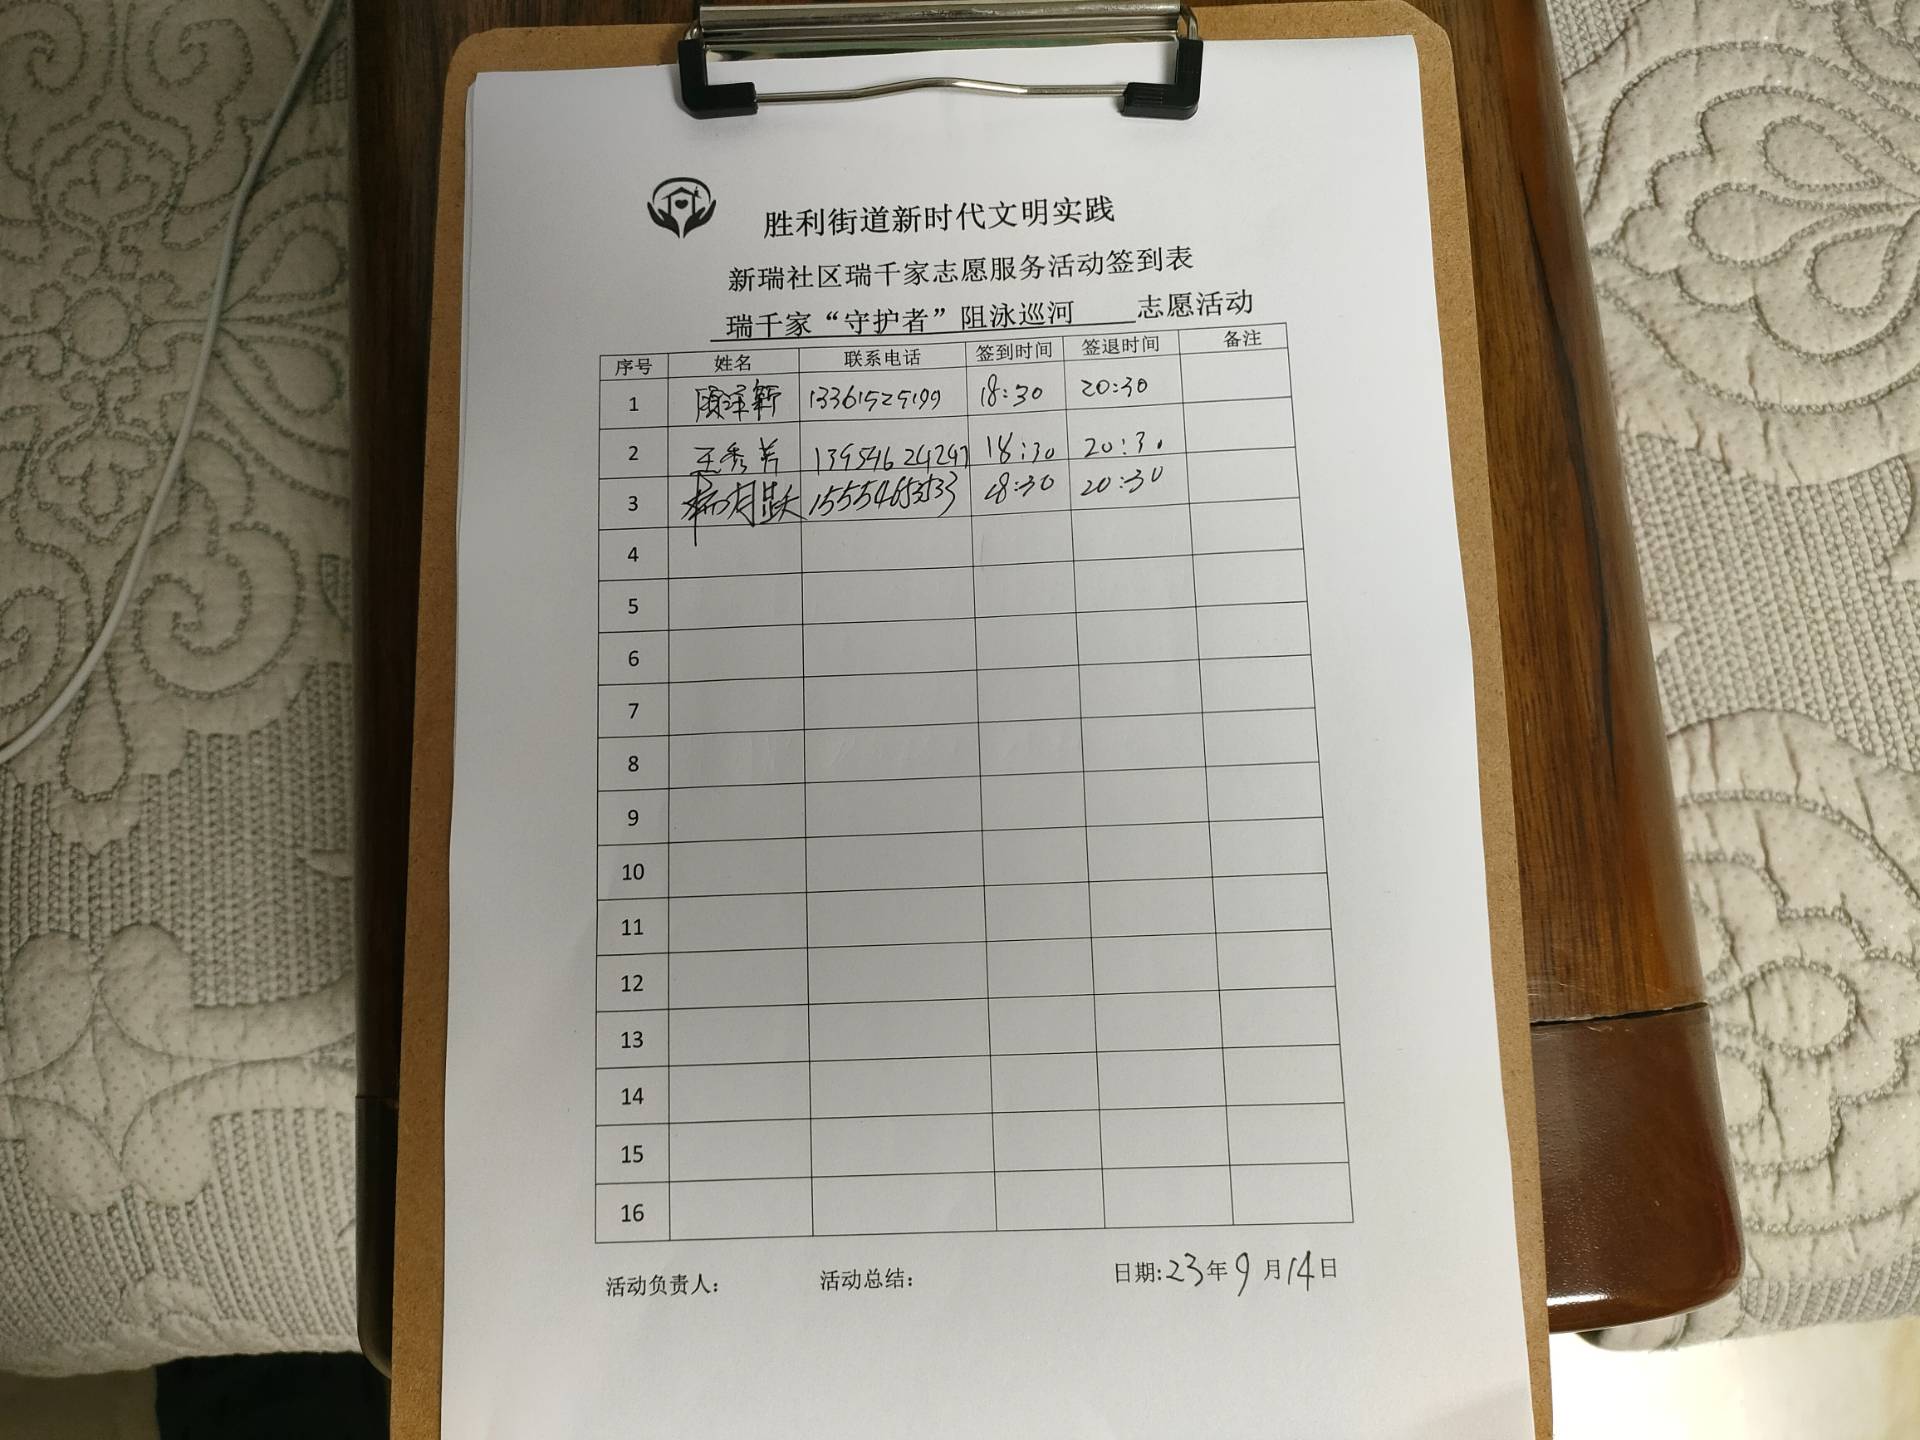 胜利街道新时代文明实践
新瑞社区瑞千家志愿服务活动签到表
瑞千家“守护者”阻泳巡河 志愿活动
序号 姓名 联系电话 签到时间 签退时间 备注
1 18:30 20:30
2 王秀芳 13954624247 18:30 20:30
3 15554653533 18:30 20:30
4
5
6
7
8
9
10
11
12
13
14
15
16
活动负责人： 活动总结： 日期:23年9月14日